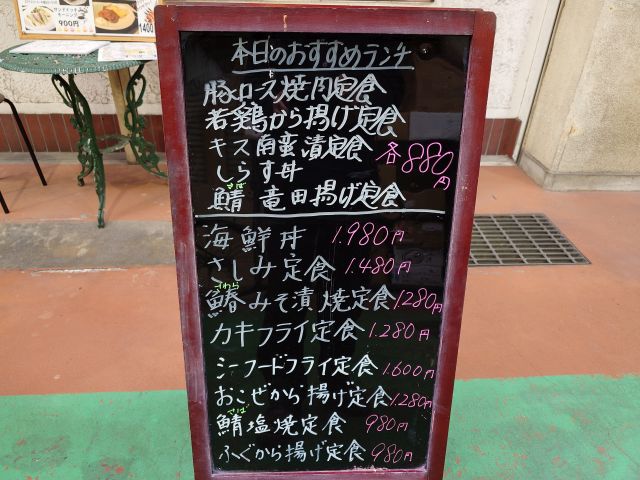 サンドイッチ
モーニング
900円
1400
本日のおすすめランチ
豚ロース焼肉定食
若鶏から揚げ定食
キス南蛮漬定食
しらす丼
各880円
さば
鯖竜田揚げ定食
海鮮丼 1.980円
さしみ定食 1.480円
さわら
鰆みそ漬焼定食 1280円
カキフライ定食 1.280円
シーフードフライ定食 1.600円
おこぜから揚げ定食 1.280円
さば
鯖塩焼定食 980円
ふぐから揚げ定食 980円